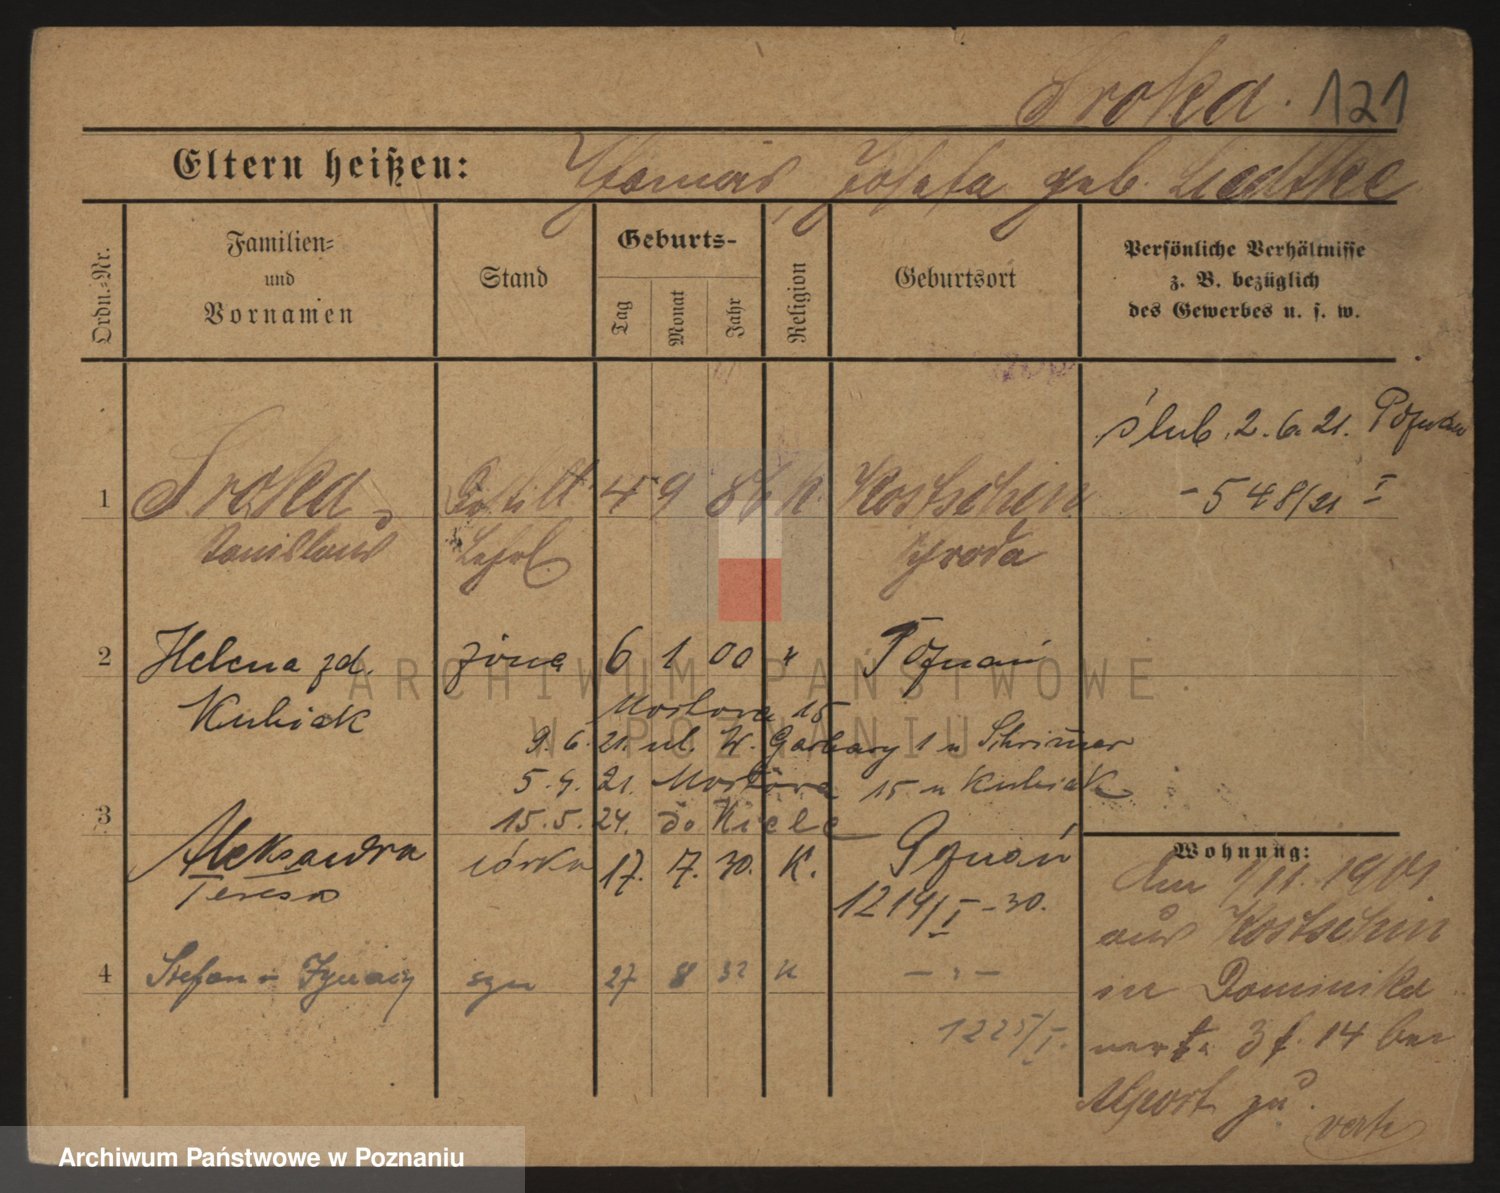 Sroka. 121
Eltern heißen: Thomas, Josefa geb. Liedtke
Ordn.-Nr.
Familien-
und
Vornamen
Stand
Geburts-
Tag
Monat
Jahr
Religion
Geburtsort
Persönliche Verhältnisse
z. B. bezüglich
des Gewerbes u. s. w.
ślub 2.6.21. Poznań
- 548/21 I
1 Sroka 4 9 86 K. Kostschin
Stanislaus Lehrl. Schroda
2 Helena zd. żona 6 1 00 " Poznań
Kubiak
Mostowa 15
9.6.21. ul. W. Garbary 1 u Schrimer
5.9.21. Mostowa 15 u Kubiak
15.5.24. do Kielc
3 Aleksandra córka 17. 7. 30. K. Poznań
Teresa
1214/I - 30.
4 Stefan Ignacy syn 27 8 32 K - " -
1225/I.
Wohnung:
den 1/11. 1901
aus Kostschin
in Dominika
3 14 bei
zu
Archiwum Państwowe w Poznaniu
ARCHIWUM PAŃSTWOWE
W POZNANIU